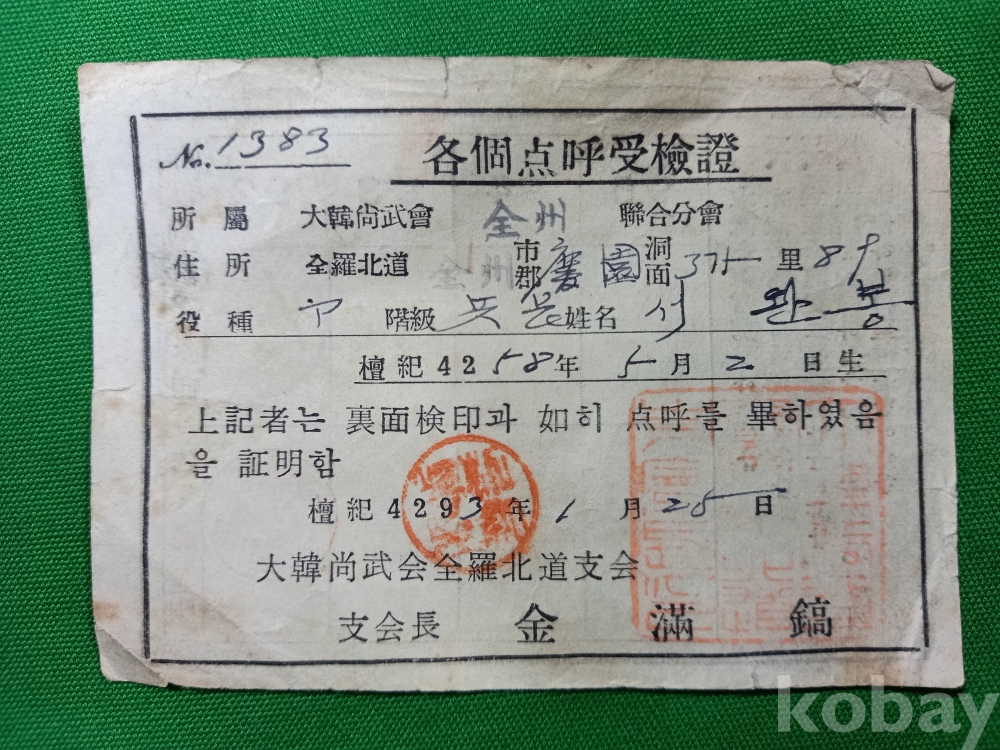 No. 1383 各個点呼受檢證
所屬 大韓尚武會 全州 聯合分會
住所 全羅北道 全州 市郡 慶園 洞面 3가 里 89
役種 階級 兵長 姓名 서 완봉
檀紀 4258年 5月 2日生
上記者는 裏面検印과 如히 点呼를 畢하였음
을 証明함
檀紀 4293年 1月 25日
大韓尚武会全羅北道支会
支会長 金滿鎬
kobay